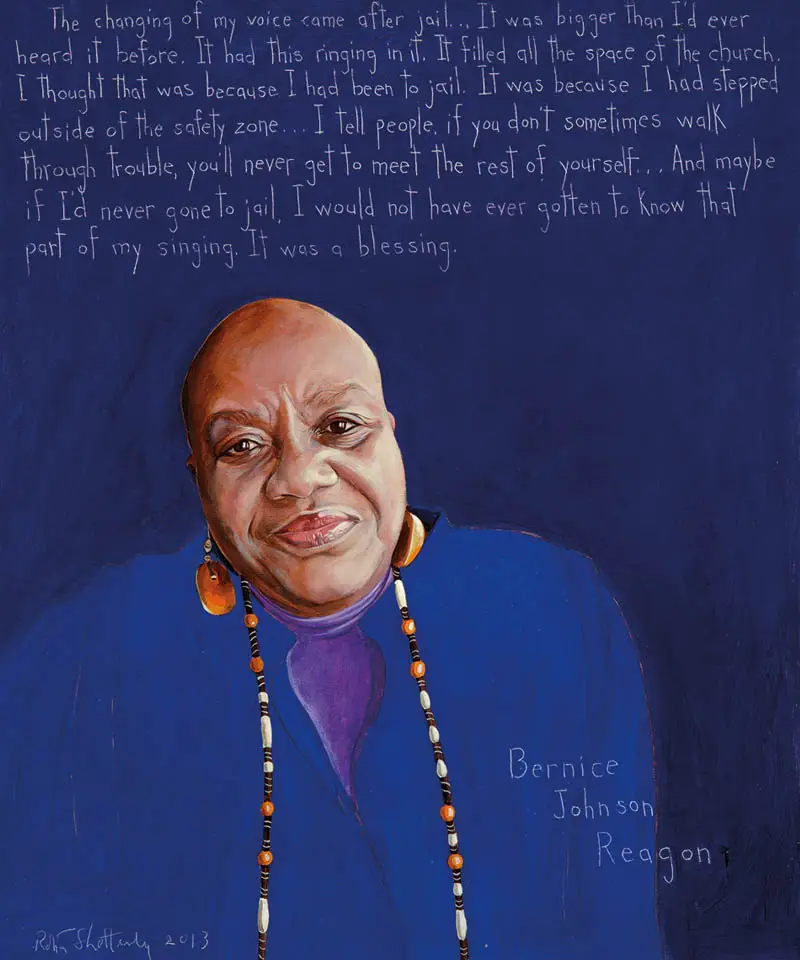 The changing of my voice came after jail... It was bigger than I'd ever
heard it before. It had this ringing in it. It filled all the space of the church.
I thought that was because I had been to jail. It was because I had stepped
outside of the safety zone... I tell people, if you don't sometimes walk
through trouble, you'll never get to meet the rest of yourself... And maybe
if I'd never gone to jail, I would not have ever gotten to know that
part of my singing. It was a blessing.
Bernice
Johnson
Reagon
Robert Shetterly 2013